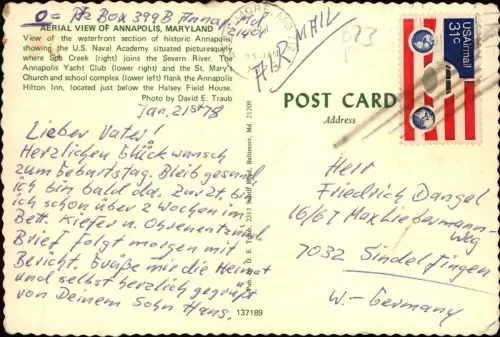 PO Box 399B Annap. Md.
21404
AERIAL VIEW OF ANNAPOLIS, MARYLAND
View of the waterfront section of historic Annapolis
showing the U.S. Naval Academy situated picturesquely
where Spa Creek (right) joins the Severn River. The
Annapolis Yacht Club (lower right) and the St. Mary's
Church and school complex (lower left) flank the Annapolis
Hilton Inn, located just below the Halsey Field House.
Photo by David E. Traub
Jan. 21st 78
Lieber Vater!
Herzlichen Glückwunsch
zum Geburtstag. Bleib gesund,
ich bin bald da. Zur Zt. bin
ich schon über 2 Wochen im
Bett. Kiefer u. Ohrenentzünd.
Brief folgt morgen mit
Bericht. Grüße mir die Heimat
und selbst herzlich gegrüßt
von Deinem Sohn Hans.
AIR MAIL
USAirmail
31c
POST CARD
Address
Herr
Friedrich Dangel
16/67 Max Liebermann-
weg
7032 Sindelfingen
W.-Germany
137189